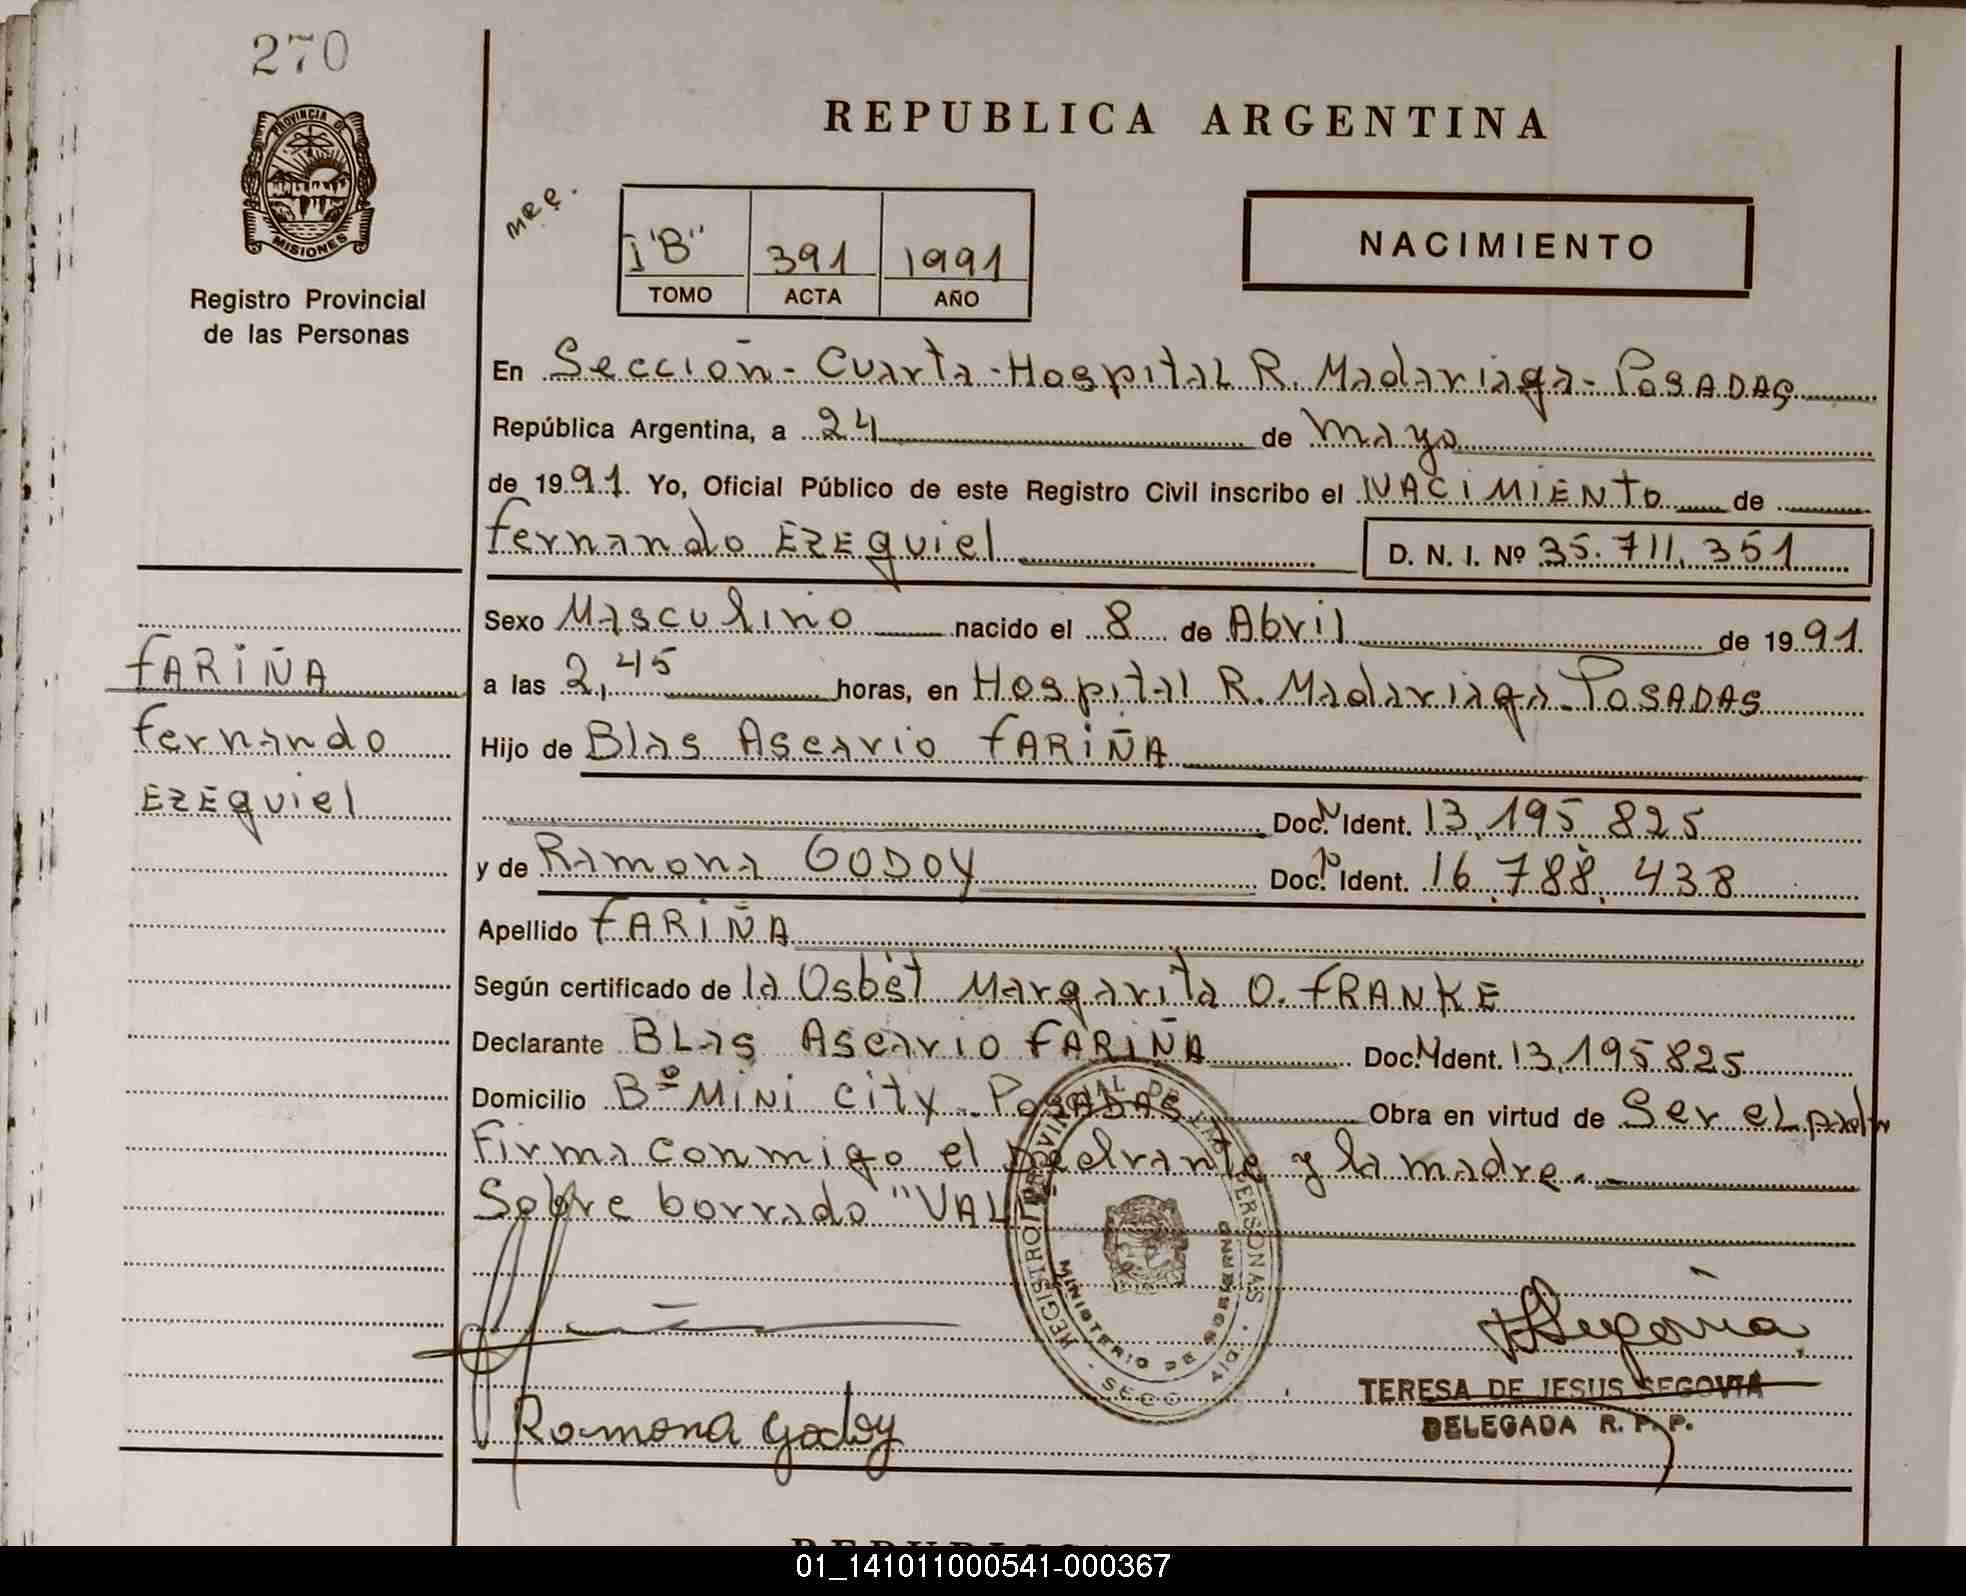 270
PROVINCIA DE
MISIONES
Registro Provincial
de las Personas
REPUBLICA ARGENTINA
I "B" 391 1991
TOMO ACTA AÑO
NACIMIENTO
En Sección - Cuarta - Hospital R. Madariaga - POSADAS
República Argentina, a 24 de Mayo
de 1991. Yo, Oficial Público de este Registro Civil inscribo el NACIMIENTO de
Fernando EZEquiel D. N. I. Nº 35.711.351
Sexo Masculino nacido el 8 de Abril de 1991.
a las 2,45 horas, en Hospital R. Madariaga - POSADAS
Hijo de Blas Ascario FARIÑA
Doc. N Ident. 13.195 825
y de Ramona GODOY Doc. Ident. 16.788.438
Apellido FARIÑA
Según certificado de la Osbst Margarita O. FRANKE
Declarante BLas Ascario FARIÑA Doc. N Ident. 13.195825
Domicilio Bº MiNi City - POSADAS Obra en virtud de Ser eL padre
Firma conmigo el y la madre.
Sobre borrado "VALE
FARIÑA
Fernando
EZEquiel
REGISTRO PROVINCIAL DE LAS PERSONAS
MINISTERIO DE GOBIERNO
Ramona Godoy
Segovia
TERESA DE JESUS SEGOVIA
DELEGADA R. P. P.
01_141011000541-000367